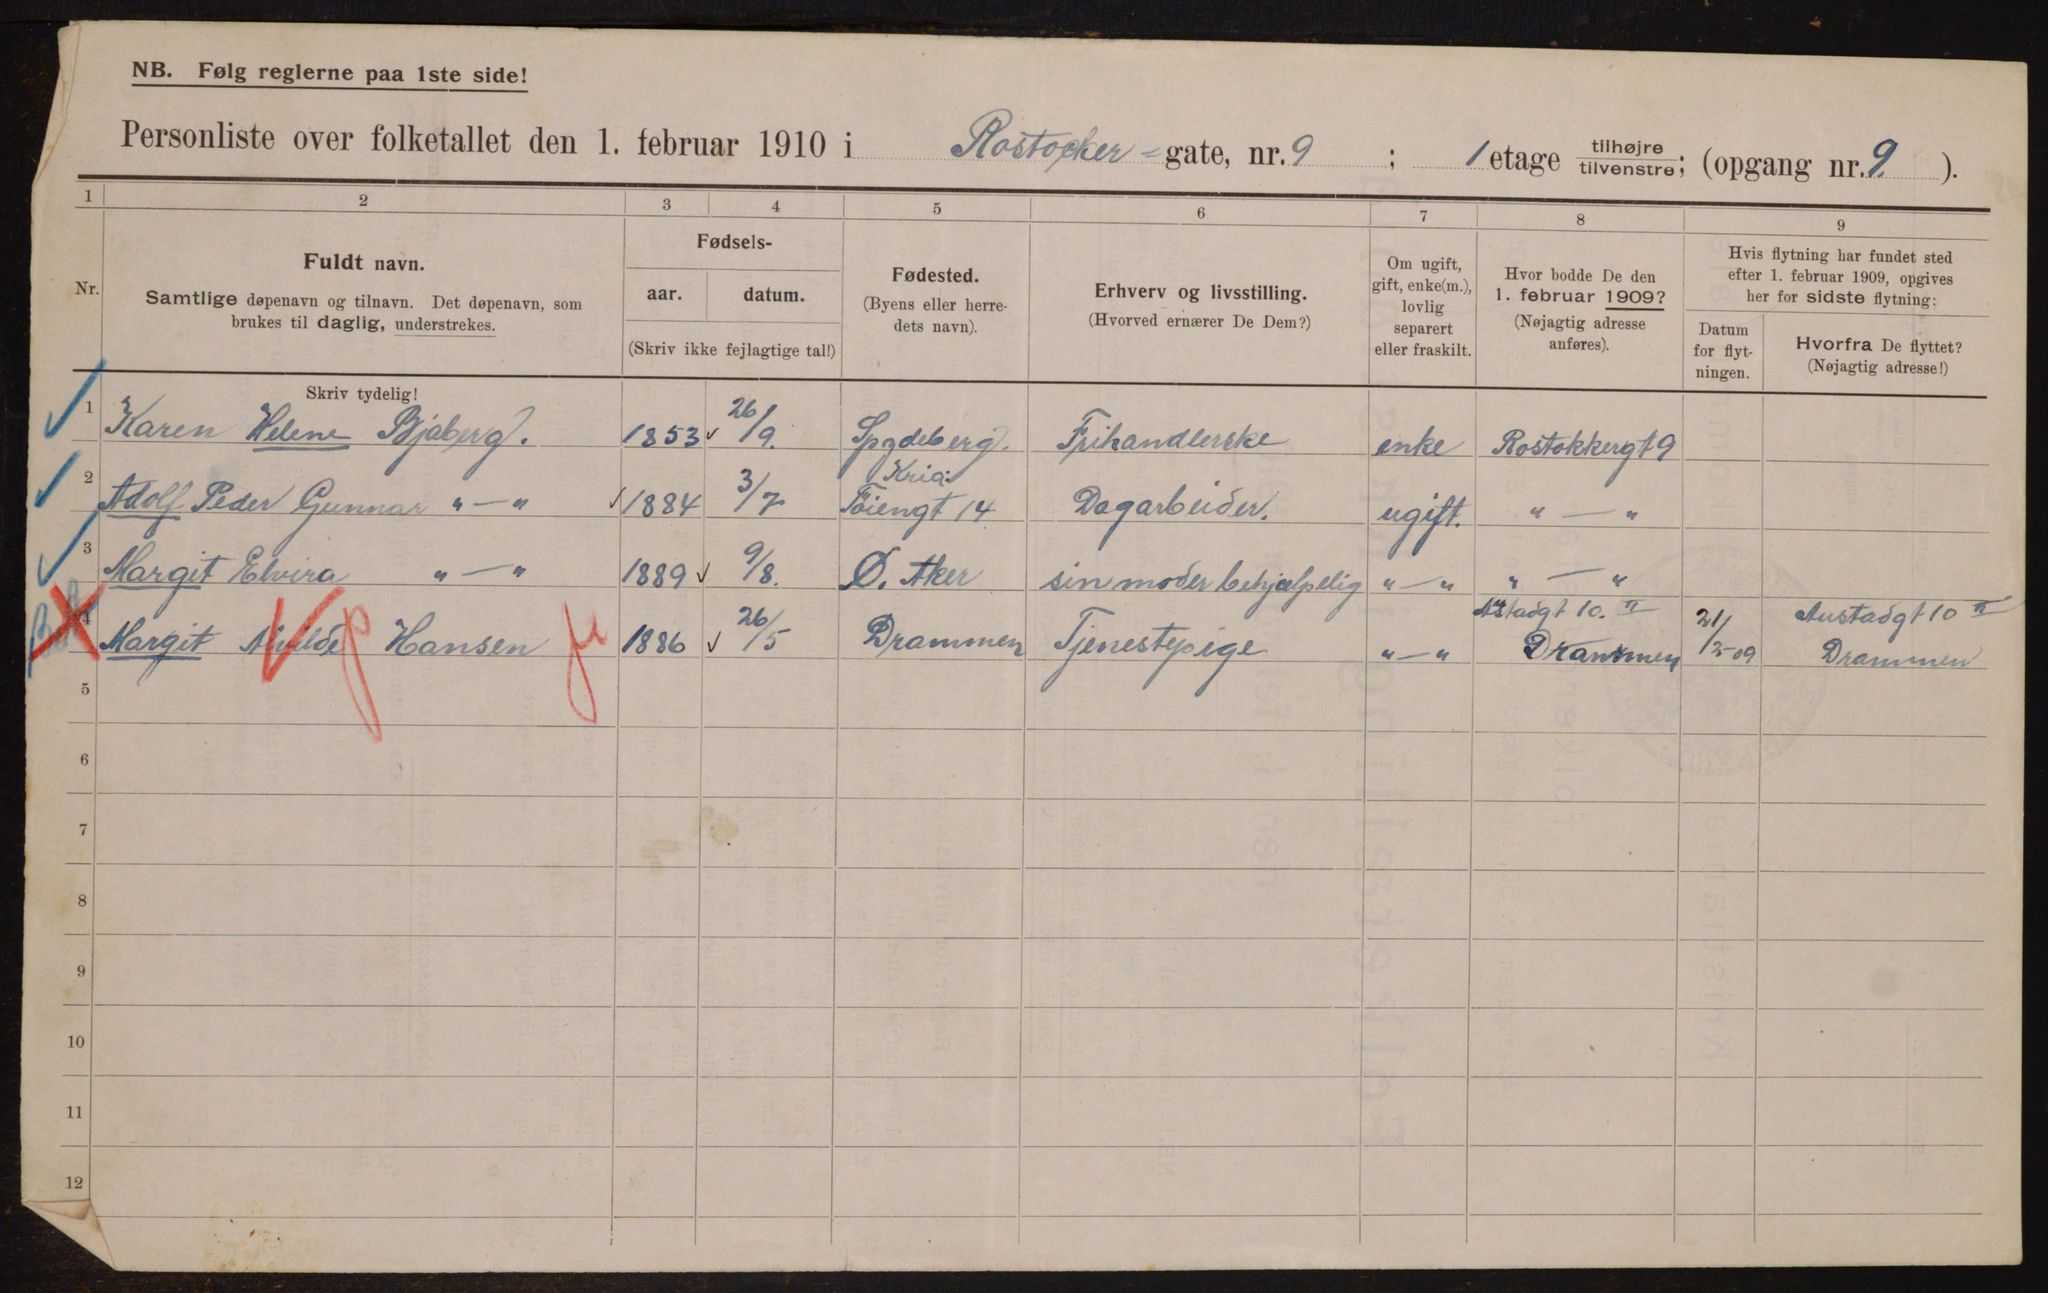 NB. Følg reglerne paa 1ste side!
Personliste over folketallet den 1. februar 1910 i Rostocker-gate, nr. 9 ; 1 etage tilhøjre/tilvenstre; (opgang nr. 9. ).
1 2 3 4 5 6 7 8 9
Nr.
Fuldt navn.
Samtlige døpenavn og tilnavn. Det døpenavn, som
brukes til daglig, understrekes.
Skriv tydelig!
Fødsels-
aar. datum.
(Skriv ikke fejlagtige tal!)
Fødested.
(Byens eller herre-
dets navn).
Erhverv og livsstilling.
(Hvorved ernærer De Dem?)
Om ugift,
gift, enke(m.),
lovlig
separert
eller fraskilt.
Hvor bodde De den
1. februar 1909?
(Nøjagtig adresse
anføres).
Hvis flytning har fundet sted
efter 1. februar 1909, opgives
her for sidste flytning:
Datum
for flyt-
ningen.
Hvorfra De flyttet?
(Nøjagtig adresse!)
1 Karen Helene Bjaberg. 1853 26/9. Spydeberg. Frihandlerske enke Rostokkergt 9
Kria:
2 Adolf Peder Gunnar " — " 1884 3/7 Töiengt 14 Dagarbeider. ugift. " — "
3 Margit Elvira " — " 1889 9/8. Ø. Aker sin moder behjælpelig " — " " — "
Austadgt 10. II Austadgt 10 II
4 Margit Hansen 1886 26/5 Drammen Tjenestepige " — " Drammen 21/2-09 Drammen
5
6
7
8
9
10
11
12